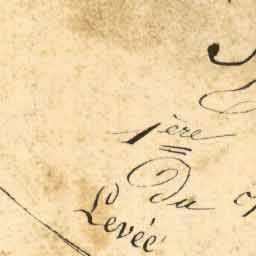 1ère
Du
Levée